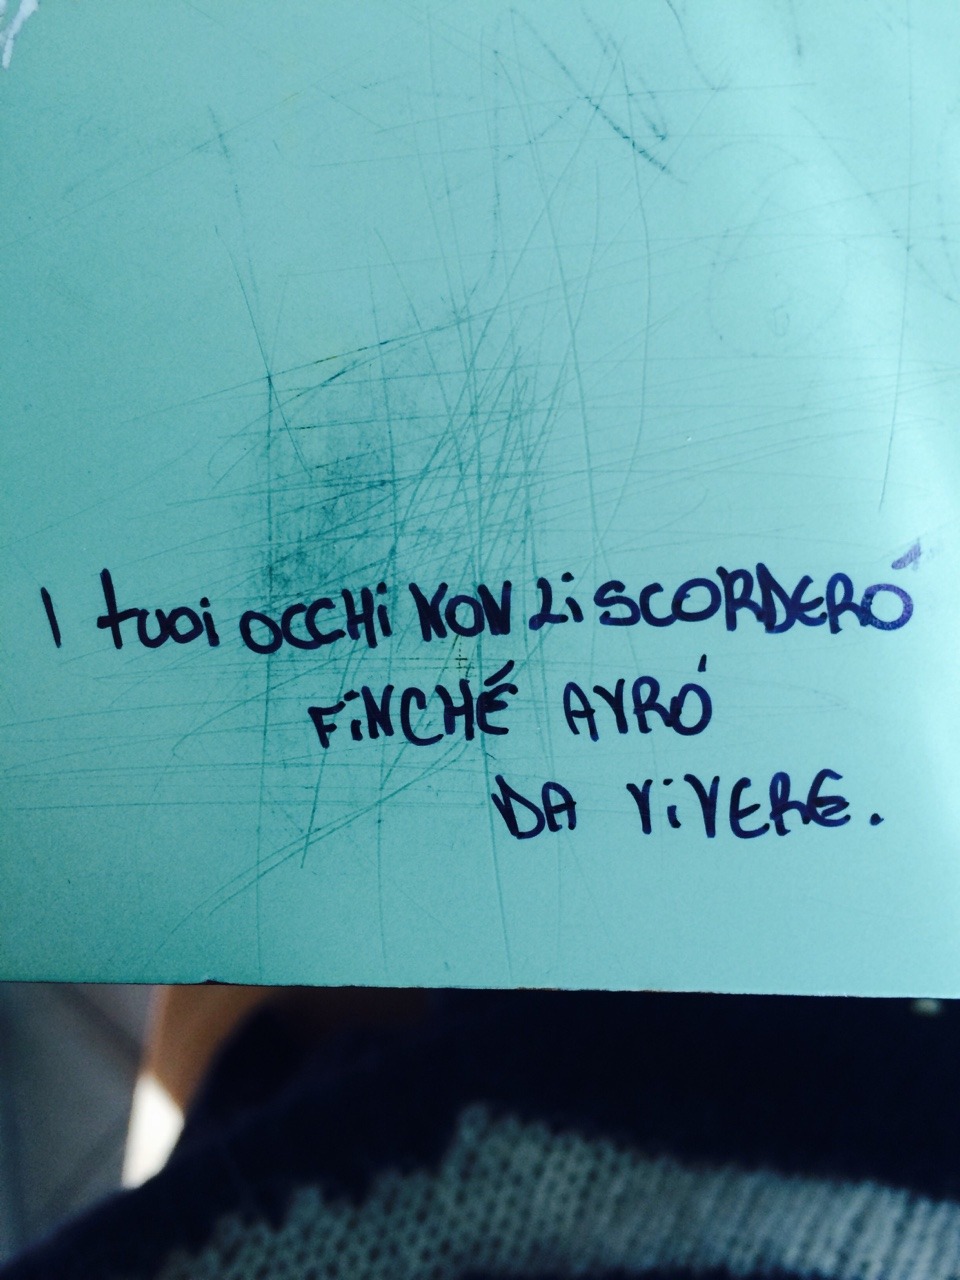 I tuoi OCCHi NON Li SCORDERÓ
FiNCHÉ AVRÓ
DA ViVERE.